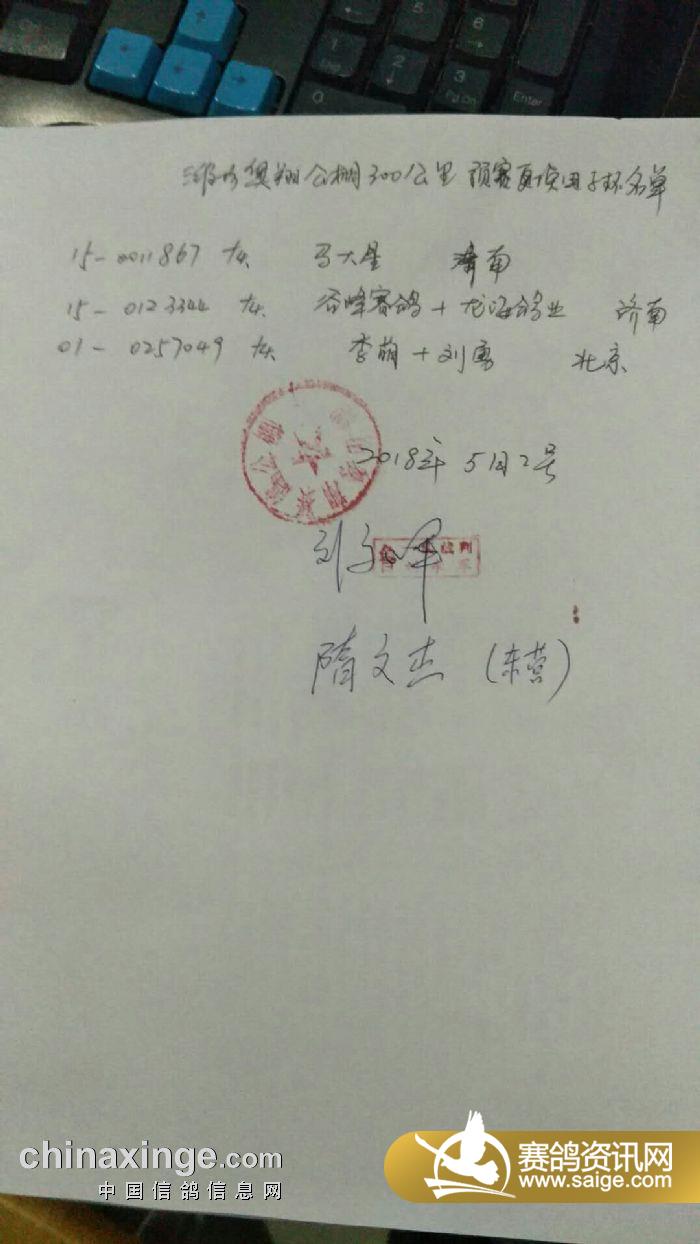 5
6
1
End
2
3
Pg Dn
Enter
0
公棚300公里 预赛 环名单
15-0011867 灰 马大星 济南
15-0123344 灰 谷峰赛鸽+龙海鸽业 济南
01-0257049 灰 李萌+刘勇 北京
2018年5月2号
刘
隋文杰 (东营)
chinaxinge.com
中国信鸽信息网
赛鸽资讯网
www.saige.com